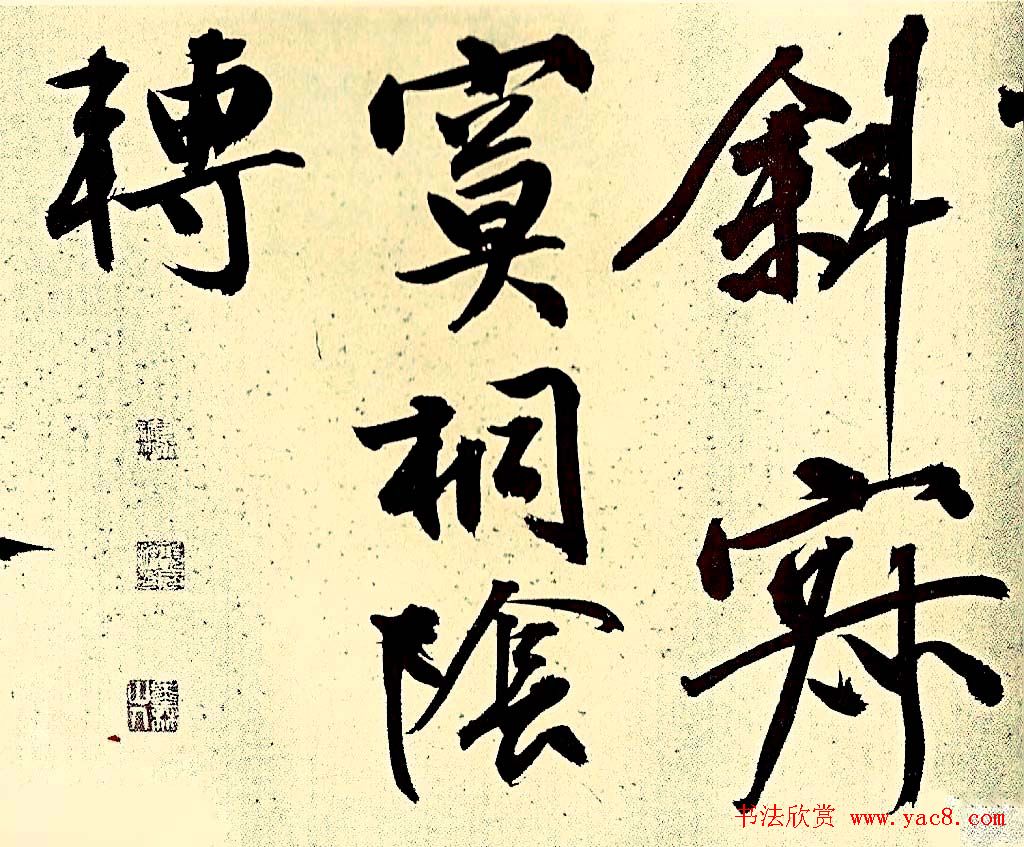 斜寂
寞桐陰
轉
书法欣赏 www.yac8.com